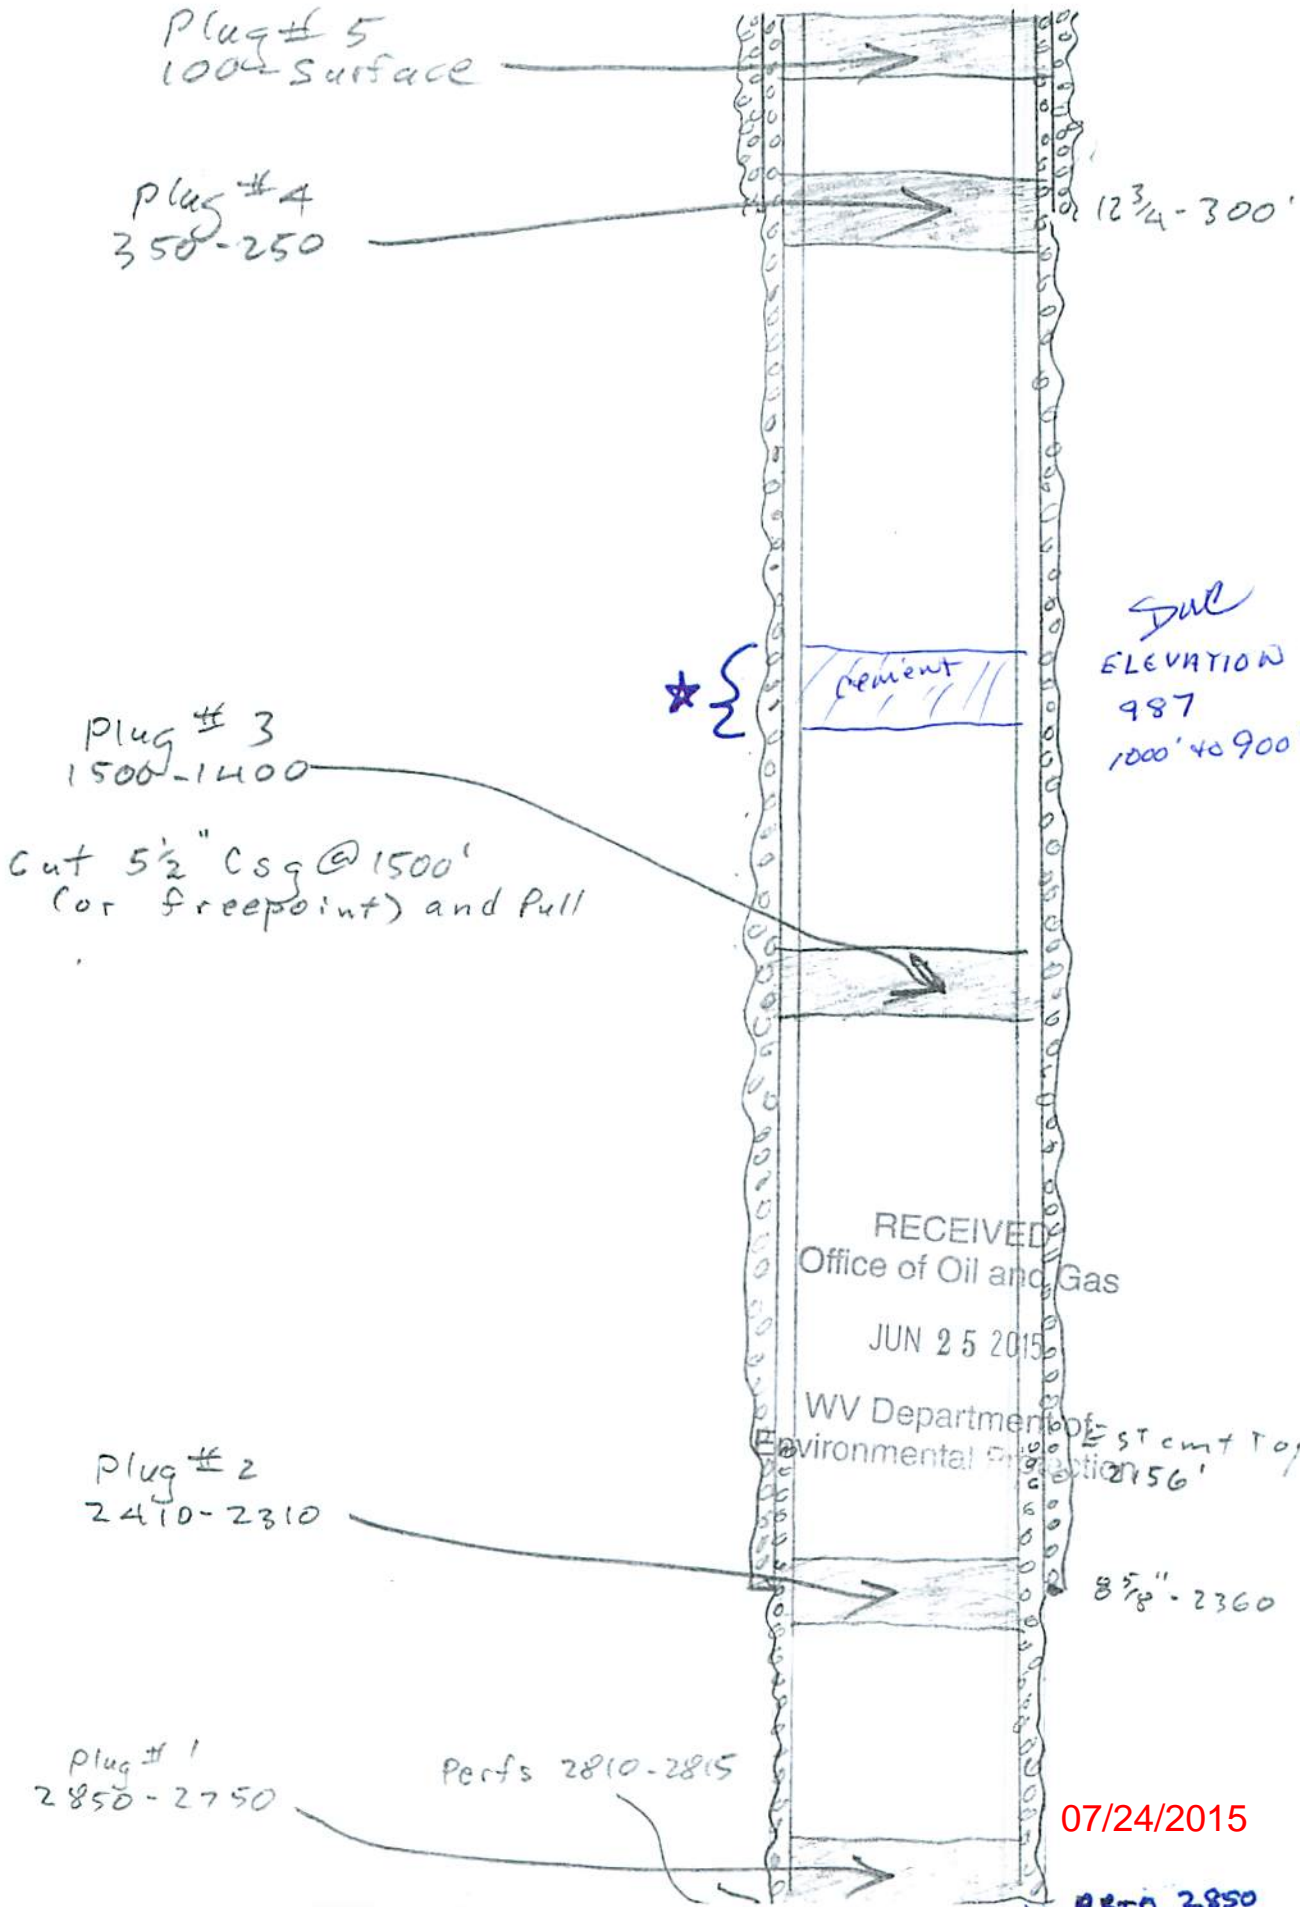 Plug # 5
100 - Surface
Plug # 4
350-250
12 3/4 - 300'
ELEVATION
987
1000' to 900
cement
Plug # 3
1500-1400
Cut 5 1/2" Csg @ 1500'
(or freepoint) and Pull
RECEIVED
Office of Oil and Gas
JUN 25 2015
WV Department of
Environmental Protection
Est cmt Top
2156'
Plug # 2
2410-2310
8 5/8" - 2360
Plug # 1
2850-2750
Perfs 2810-2815
07/24/2015
2850